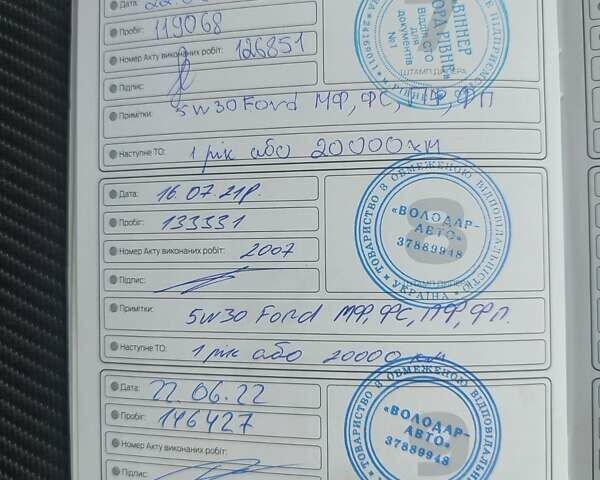 Дата:
Пробіг: 119068
Номер Акту виконаних робіт: 126851
Підпис:
Примітки: 5w30 Ford МФ, ФС, ПФ, ФП
Наступне ТО: 1 рік або 20000 км
ВІННЕР
ФОРД РІВНЕ
Відділ СТО
для
документів
№1
Дата: 16.07.21р.
Пробіг: 133331
Номер Акту виконаних робіт: 2007
Підпис:
Примітки: 5w30 Ford МФ, ФС, ПФ, ФП.
Наступне ТО: 1 рік або 20000 км
8
ТОВАРИСТВО З ОБМЕЖЕНОЮ ВІДПОВІДАЛЬНІСТЮ
«ВОЛОДАР-
АВТО»
37889948
УКРАЇНА
Дата: 22.06.22
Пробіг: 146427
Номер Акту виконаних робіт:
Підпис:
ТОВАРИСТВО З ОБМЕЖЕНОЮ
«ВОЛОДАР-
АВТО»
37889948